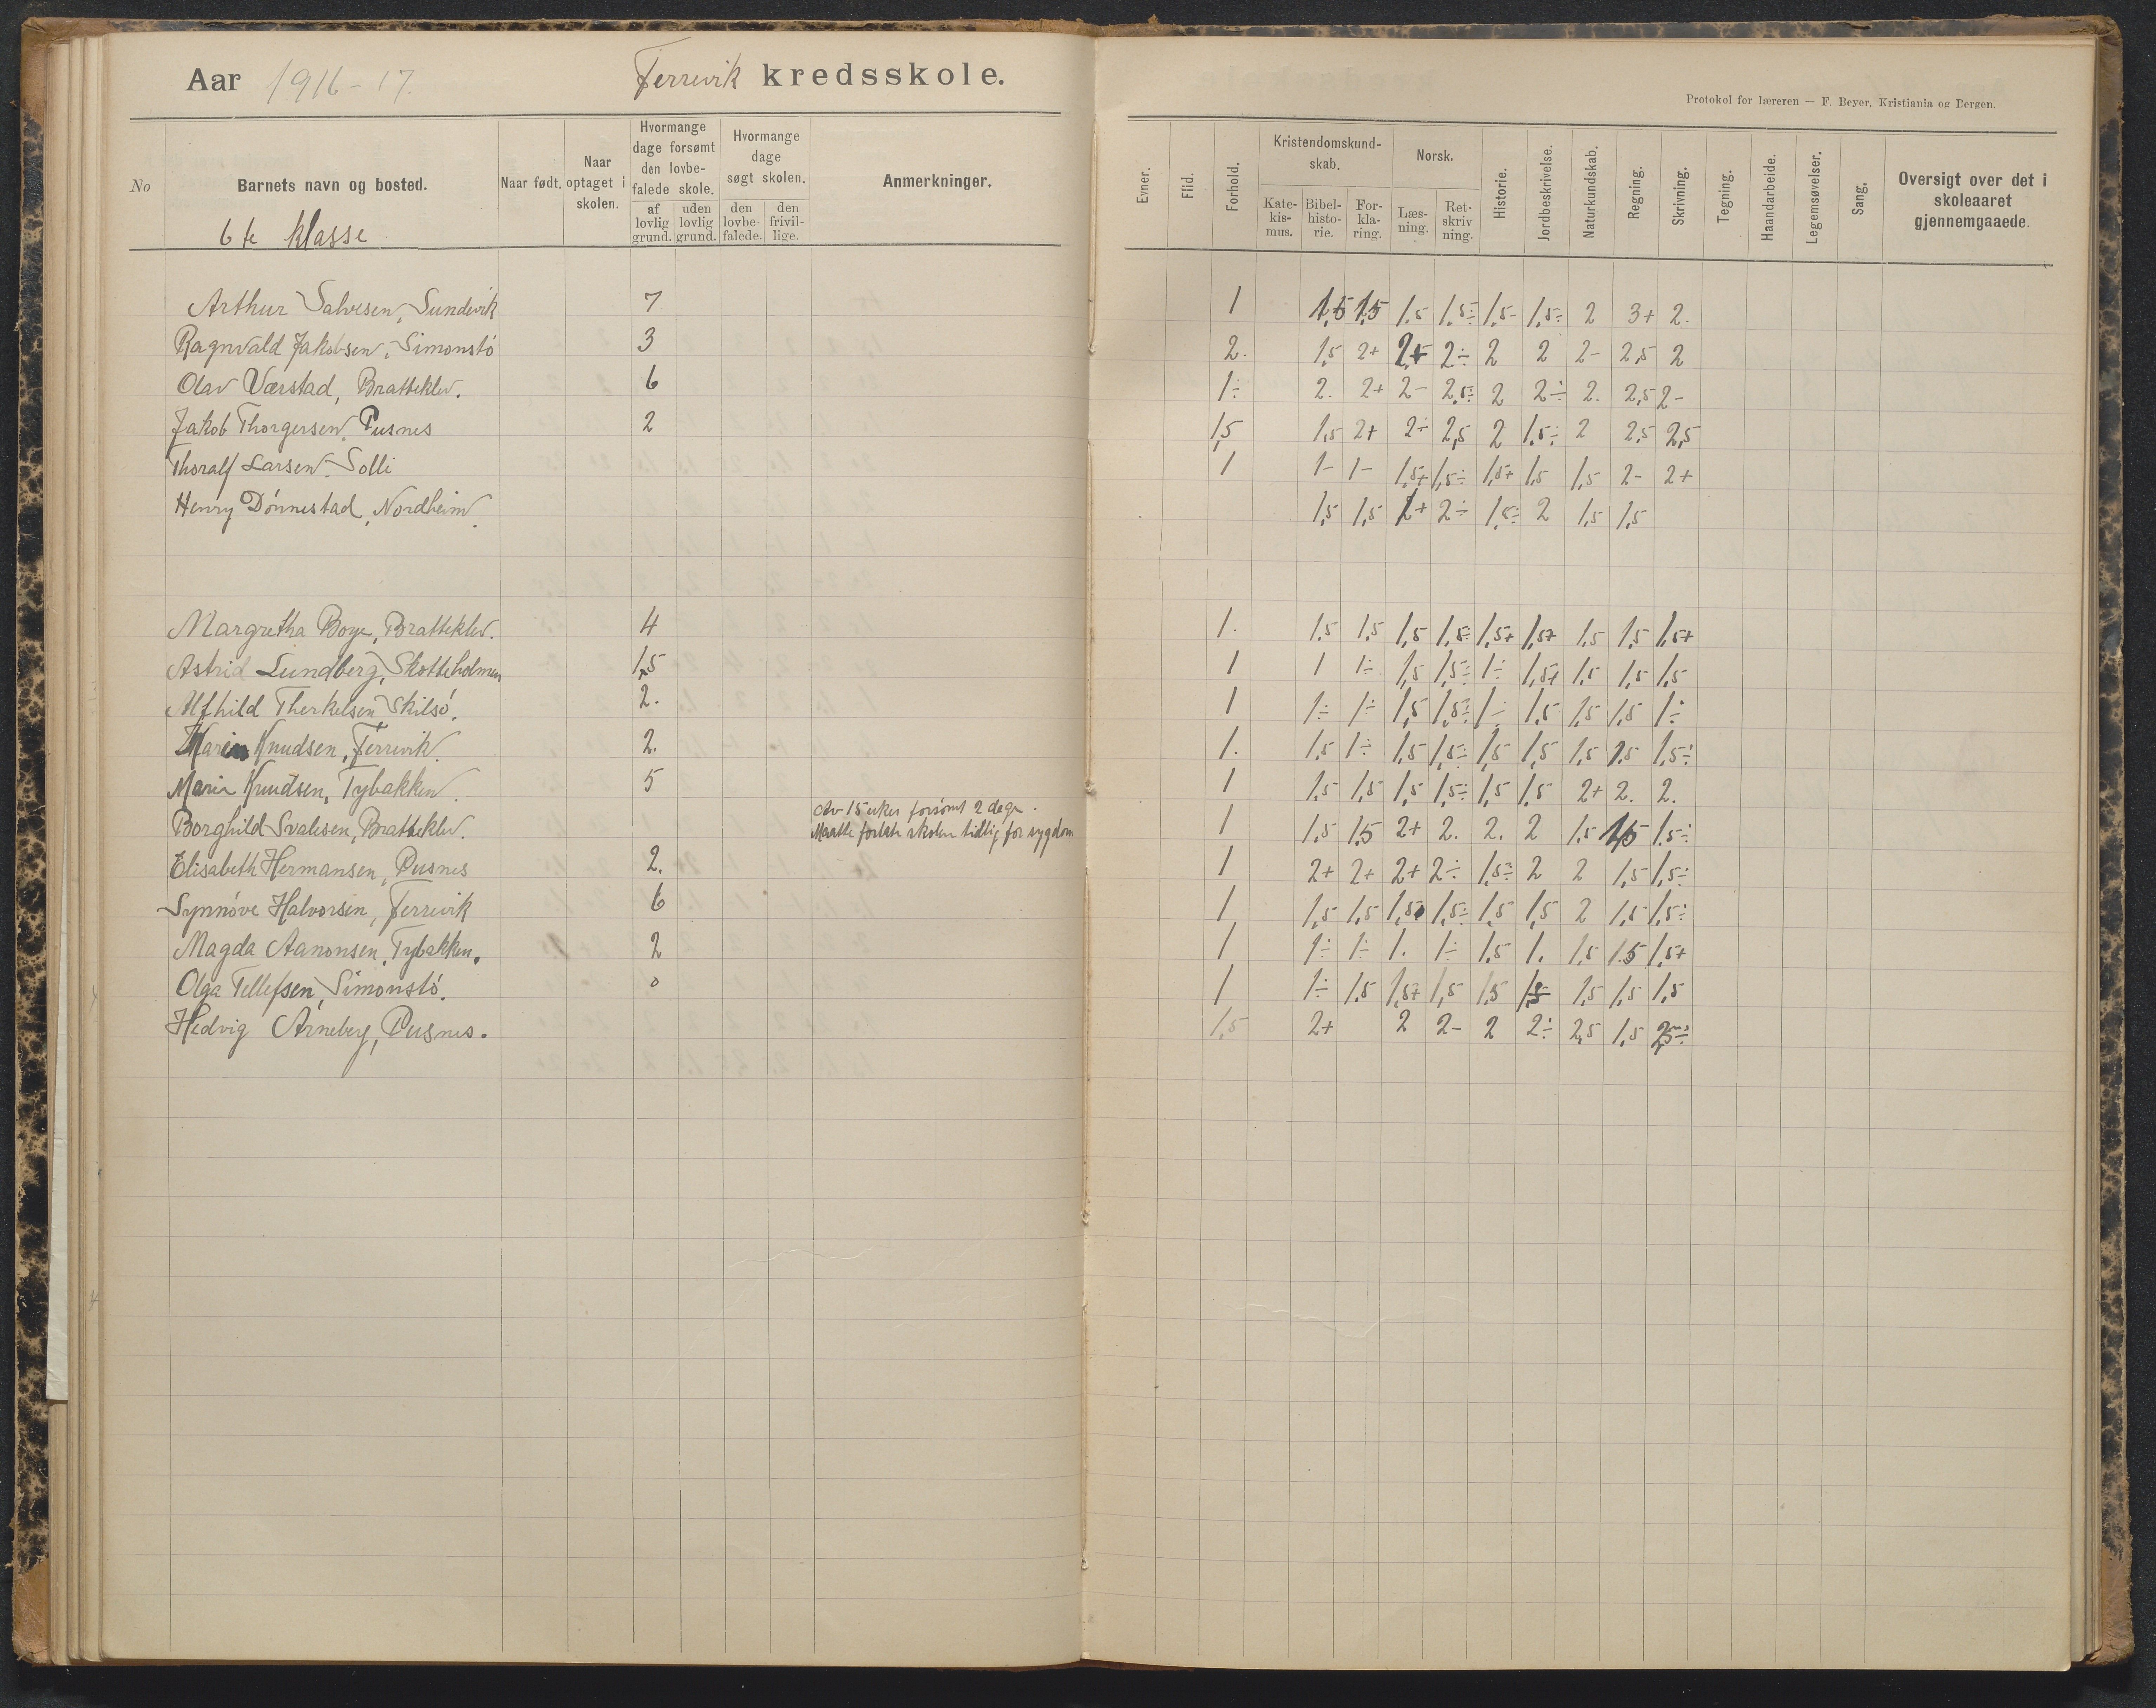 Aar 1916-17. Ferrevik kredsskole.
Protokol for læreren — F. Beyer, Kristiania og Bergen.
No
Barnets navn og bosted.
Naar født.
Naar optaget i skolen.
Hvormange dage forsømt den lovbefalede skole.
af lovlig grund.
uden lovlig grund.
Hvormange dage søgt skolen.
den lovbefalede.
den frivillige.
Anmerkninger.
Evner.
Flid.
Forhold.
Kristendomskundskab.
Katekismus.
Bibelhistorie.
Forklaring.
Norsk.
Læsning.
Retskrivning.
Historie.
Jordbeskrivelse.
Naturkundskab.
Regning.
Skrivning.
Tegning.
Haandarbeide.
Legemsøvelser.
Sang.
Oversigt over det i skoleaaret gjennemgaaede.
6te klasse
Arthur Salvesen, Sundevik 7 1 1,5 1,5 1,5 1,5÷ 1,5- 1,5÷ 2 3+ 2.
Ragnvald Jakobsen, Simonstö 3 2. 1,5 2+ 2+ 2÷ 2 2 2- 2,5 2
Olav Værstad, Bratteklev. 6 1÷ 2. 2+ 2- 2,5÷ 2 2÷ 2. 2,5 2-
Jakob Thorgersen, Pusnes 2 1,5 1,5 2+ 2÷ 2,5 2 1,5÷ 2 2,5 2,5
Thoralf Larsen, Solli 1 1- 1- 1,5+ 1,5÷ 1,5+ 1,5 1,5 2- 2+
Henry Dönnestad, Nordheim. 1,5 1,5 2+ 2÷ 1,5÷ 2 1,5 1,5
Margretha Boye, Bratteklev. 4 1. 1,5 1,5 1,5 1,5÷ 1,5+ 1,5+ 1,5 1,5 1,5+
Astrid Lundberg, Skotteholmen 1,5 1 1 1÷ 1,5 1,5÷ 1÷ 1,5+ 1,5 1,5 1,5
Alfhild Therkelsen Skilsö. 2. 1 1÷ 1÷ 1,5 1,5÷ 1÷ 1,5 1,5 1,5 1÷
Karin Knudsen, Ferrevik. 2. 1. 1,5 1÷ 1,5 1,5÷ 1,5 1,5 1,5 1,5 1,5÷
Marie Knudsen, Tybakken. 5 1 1,5 1,5 1,5 1,5÷ 1,5 1,5 2+ 2. 2.
Av 15 uker forsömt 2 dage.
Borghild Svalesen, Bratteklev. Maatte forlate skolen tidlig for sygdom 1 1,5 1,5 2+ 2. 2. 2 1,5 1,5 1,5÷
Elisabeth Hermansen, Pusnes 2. 1 2+ 2+ 2+ 2÷ 1,5÷ 2 2 1,5 1,5÷
Synnöve Halvorsen, Ferrevik 6 1 1,5 1,5 1,5 1,5÷ 1,5 1,5 2 1,5 1,5÷
Magda Aanonsen, Tybakken. 2 1 1÷ 1÷ 1. 1÷ 1,5 1. 1,5 1.5 1,5+
Olga Tellefsen, Simonstö. 0 1 1÷ 1,5 1,5+ 1,5 1,5 1,5 1,5 1,5 1,5
Hedvig Arneberg, Pusnes. 1,5 2+ 2 2- 2 2÷ 2,5 1,5 2,5÷